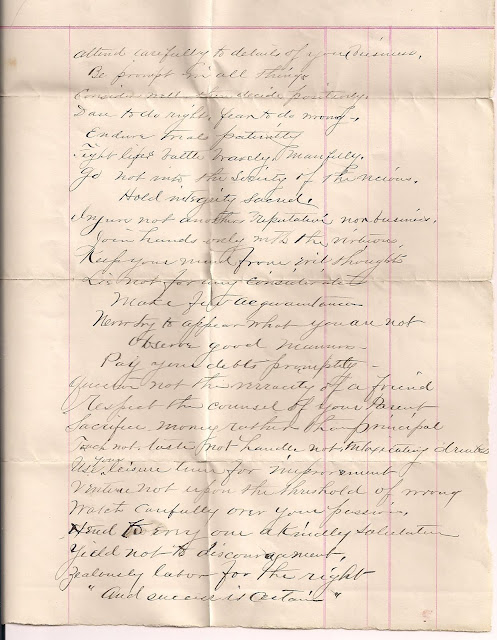 Attend carefully to details of your business.
Be prompt in all things
Consider well then decide positively.
Dare to do right, fear to do wrong.
Endure trials patiently
Fight life's battle bravely, manfully.
Go not into the society of the vicious.
Hold integrity sacred.
Injure not another's reputation nor business.
Join hands only with the virtuous.
Keep your mind from evil thoughts
Lie not for any consideration
Make few acquaintances
Never try to appear what you are not
Observe good manners
Pay your debts promptly
Question not the veracity of a friend
Respect the counsel of your Parent
Sacrifice money rather than principal
Touch not, taste not handle not intoxicating drinks
Use your leisure time for improvement
Venture not upon the threshold of wrong
Watch carefully over your passions.
Xtend to every one a kindly salutation
Yield not to discouragement,
Zealously labor for the right
"And success is certain"